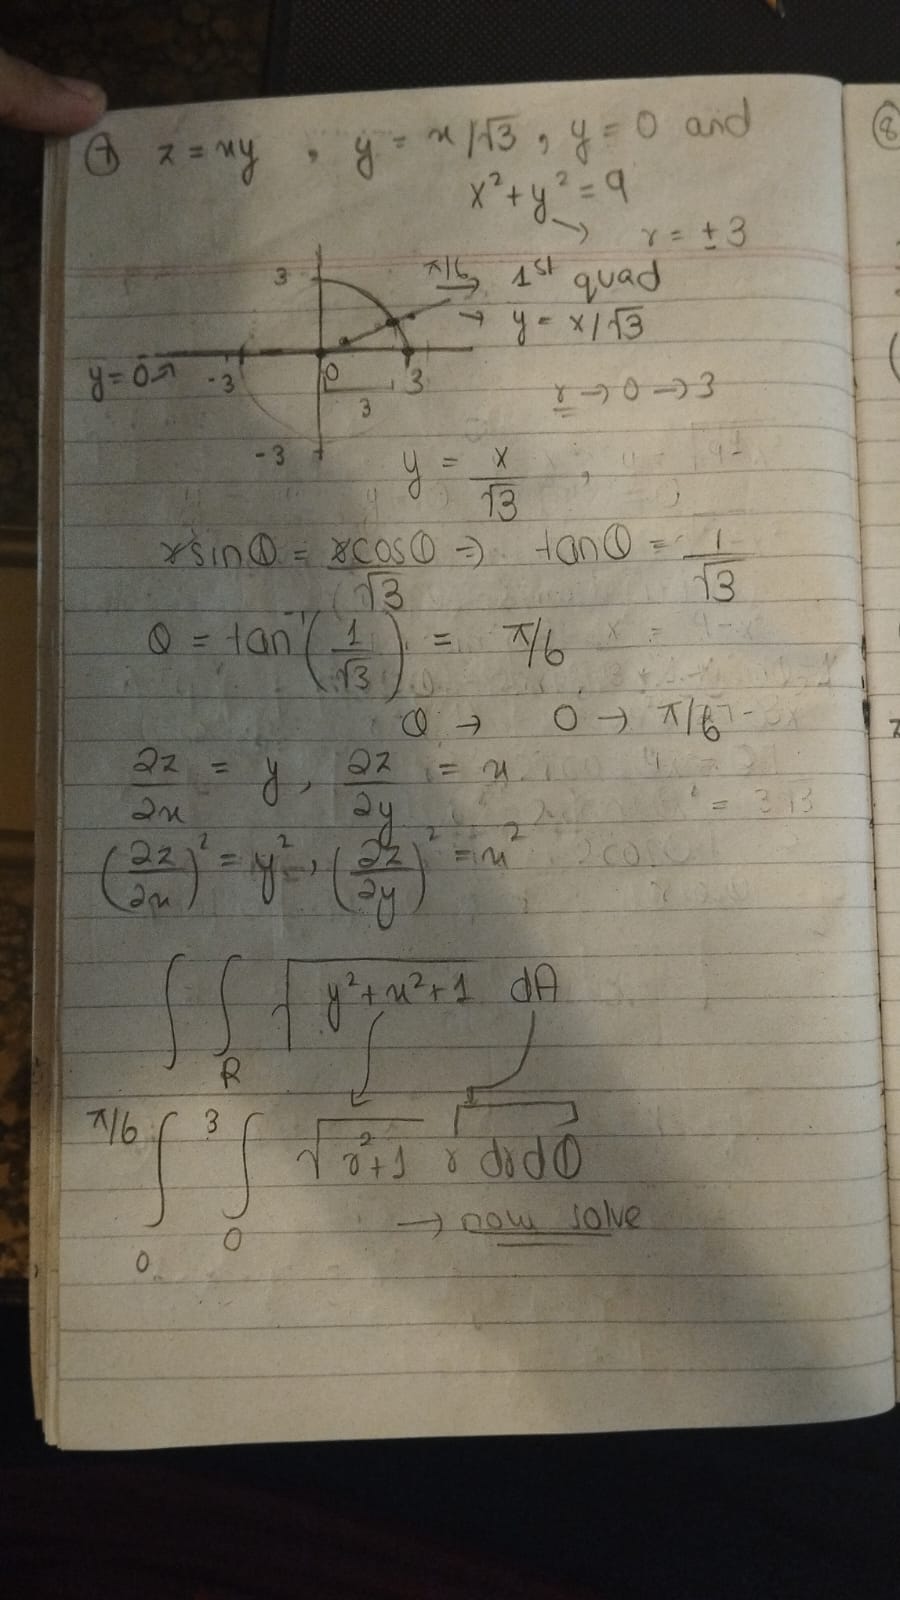 ⑦ z = xy , y = x/√3 , y = 0 and
x² + y² = 9
→ r = ±3
3 π/6 → 1st quad
→ y = x/√3
y=0 -3 0 3
3
r → 0 → 3
-3
y = x/√3
rsinθ = rcosθ/√3 ⇒ tanθ = 1/√3
θ = tan⁻¹(1/√3) = π/6
θ → 0 → π/6
∂z/∂x = y, ∂z/∂y = x
(∂z/∂x)² = y², (∂z/∂y)² = x²
∫∫_R √(y²+x²+1) dA
∫_0^{π/6} ∫_0^3 √(r²+1) r dr dθ
→ now solve
⑧